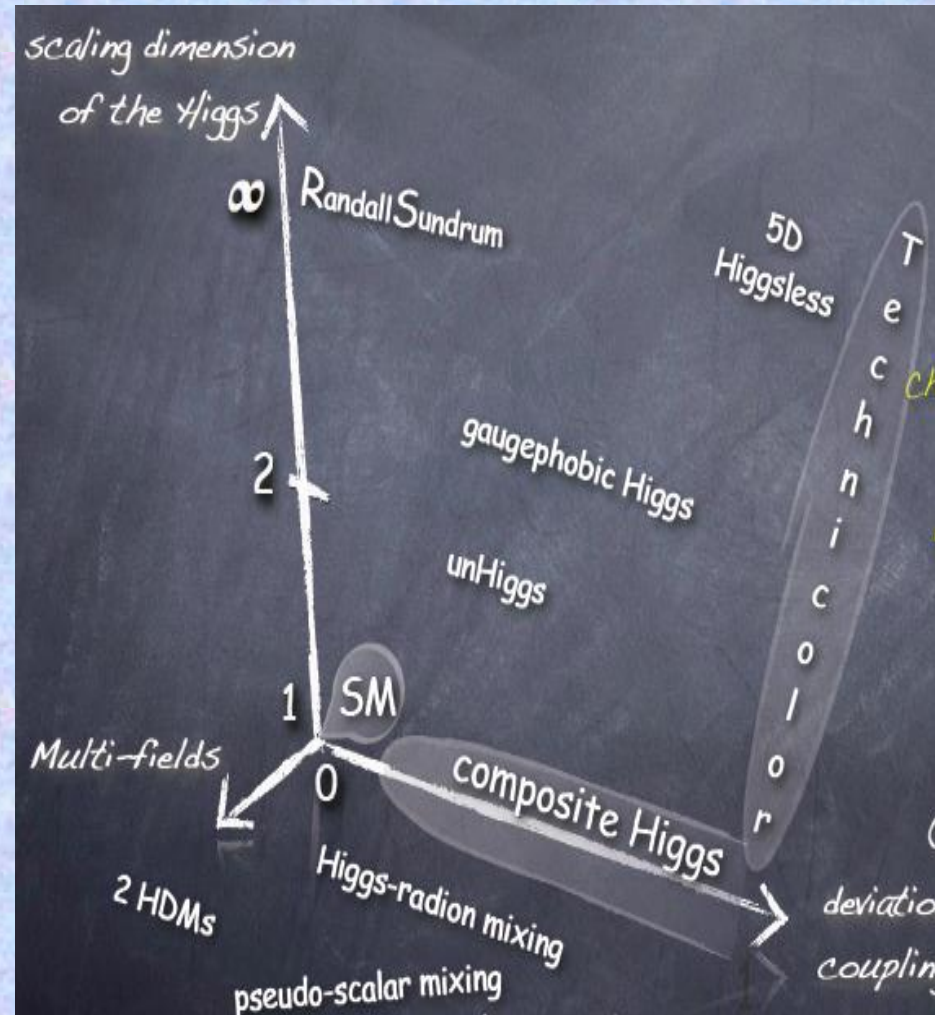 scaling dimension
of the Higgs
∞
RandallSundrum
5D
Higgsless
Technicolor
gaugephobic Higgs
2
unHiggs
1
SM
Multi-fields
0
composite Higgs
2 HDMs
Higgs-radion mixing
pseudo-scalar mixing